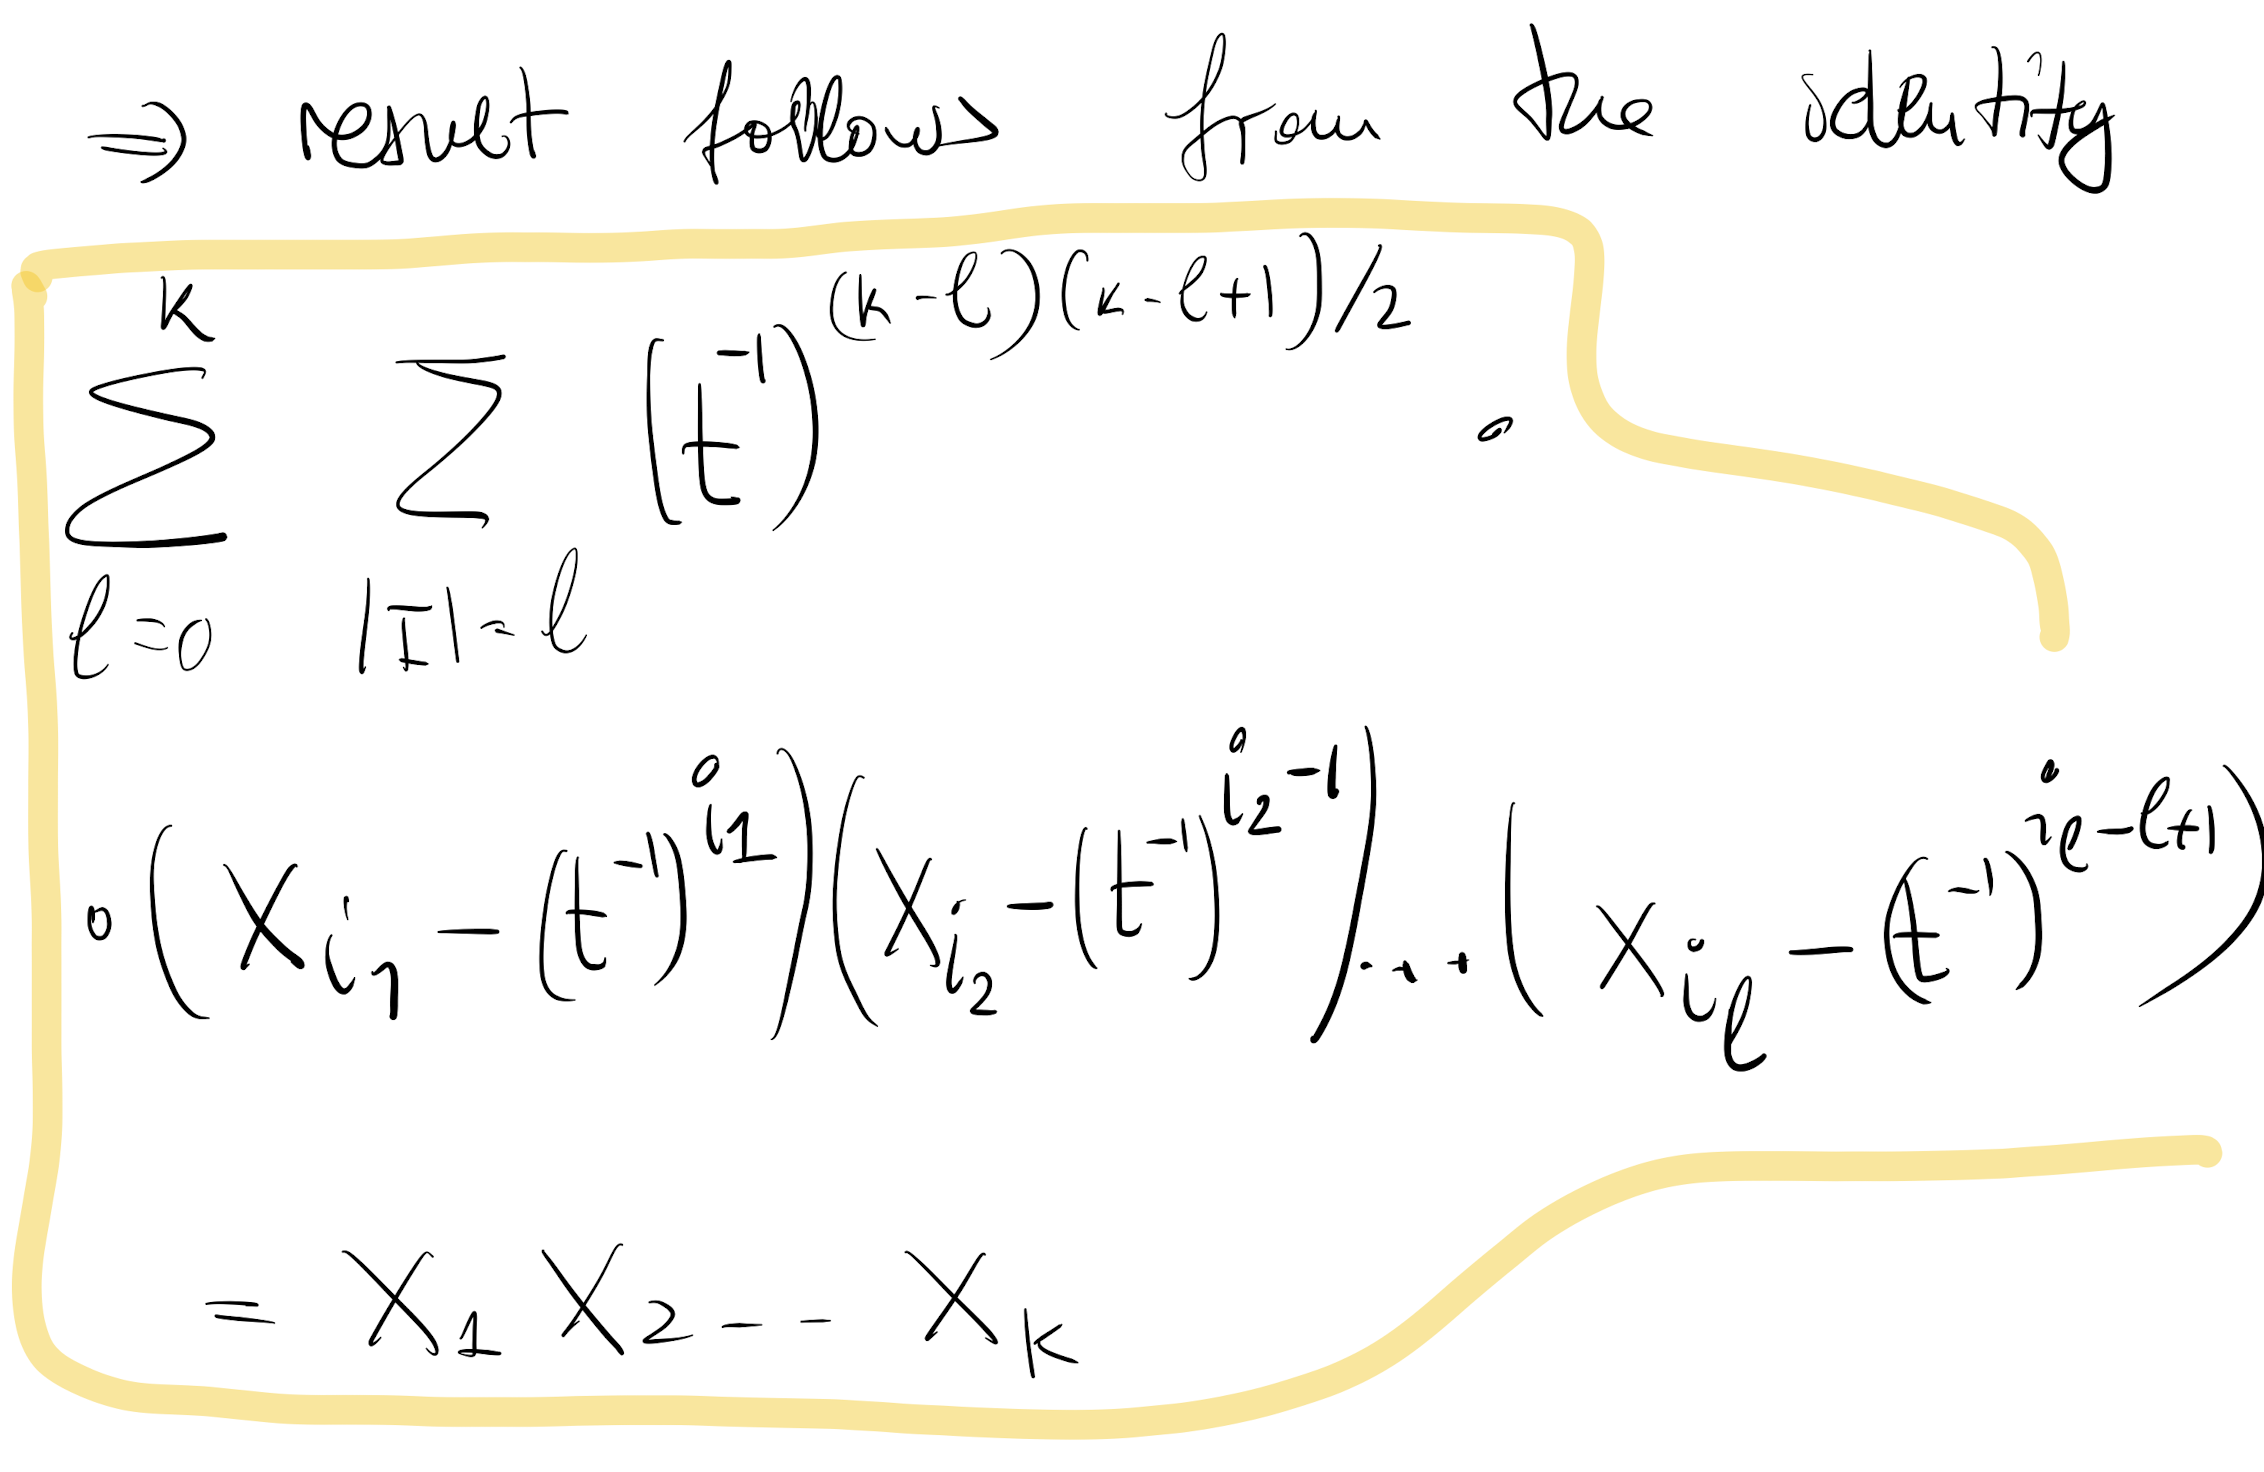 ⇒ result follows from the identity
\sum_{l=0}^{k} \sum_{|I|=l} (t^{-1})^{(k-l)(k-l+1)/2} ·
· (X_{i_1} - (t^{-1})^{i_1}) (X_{i_2} - (t^{-1})^{i_2-1}) ... (X_{i_l} - (t^{-1})^{i_l-l+1})
= X_1 X_2 ... X_k